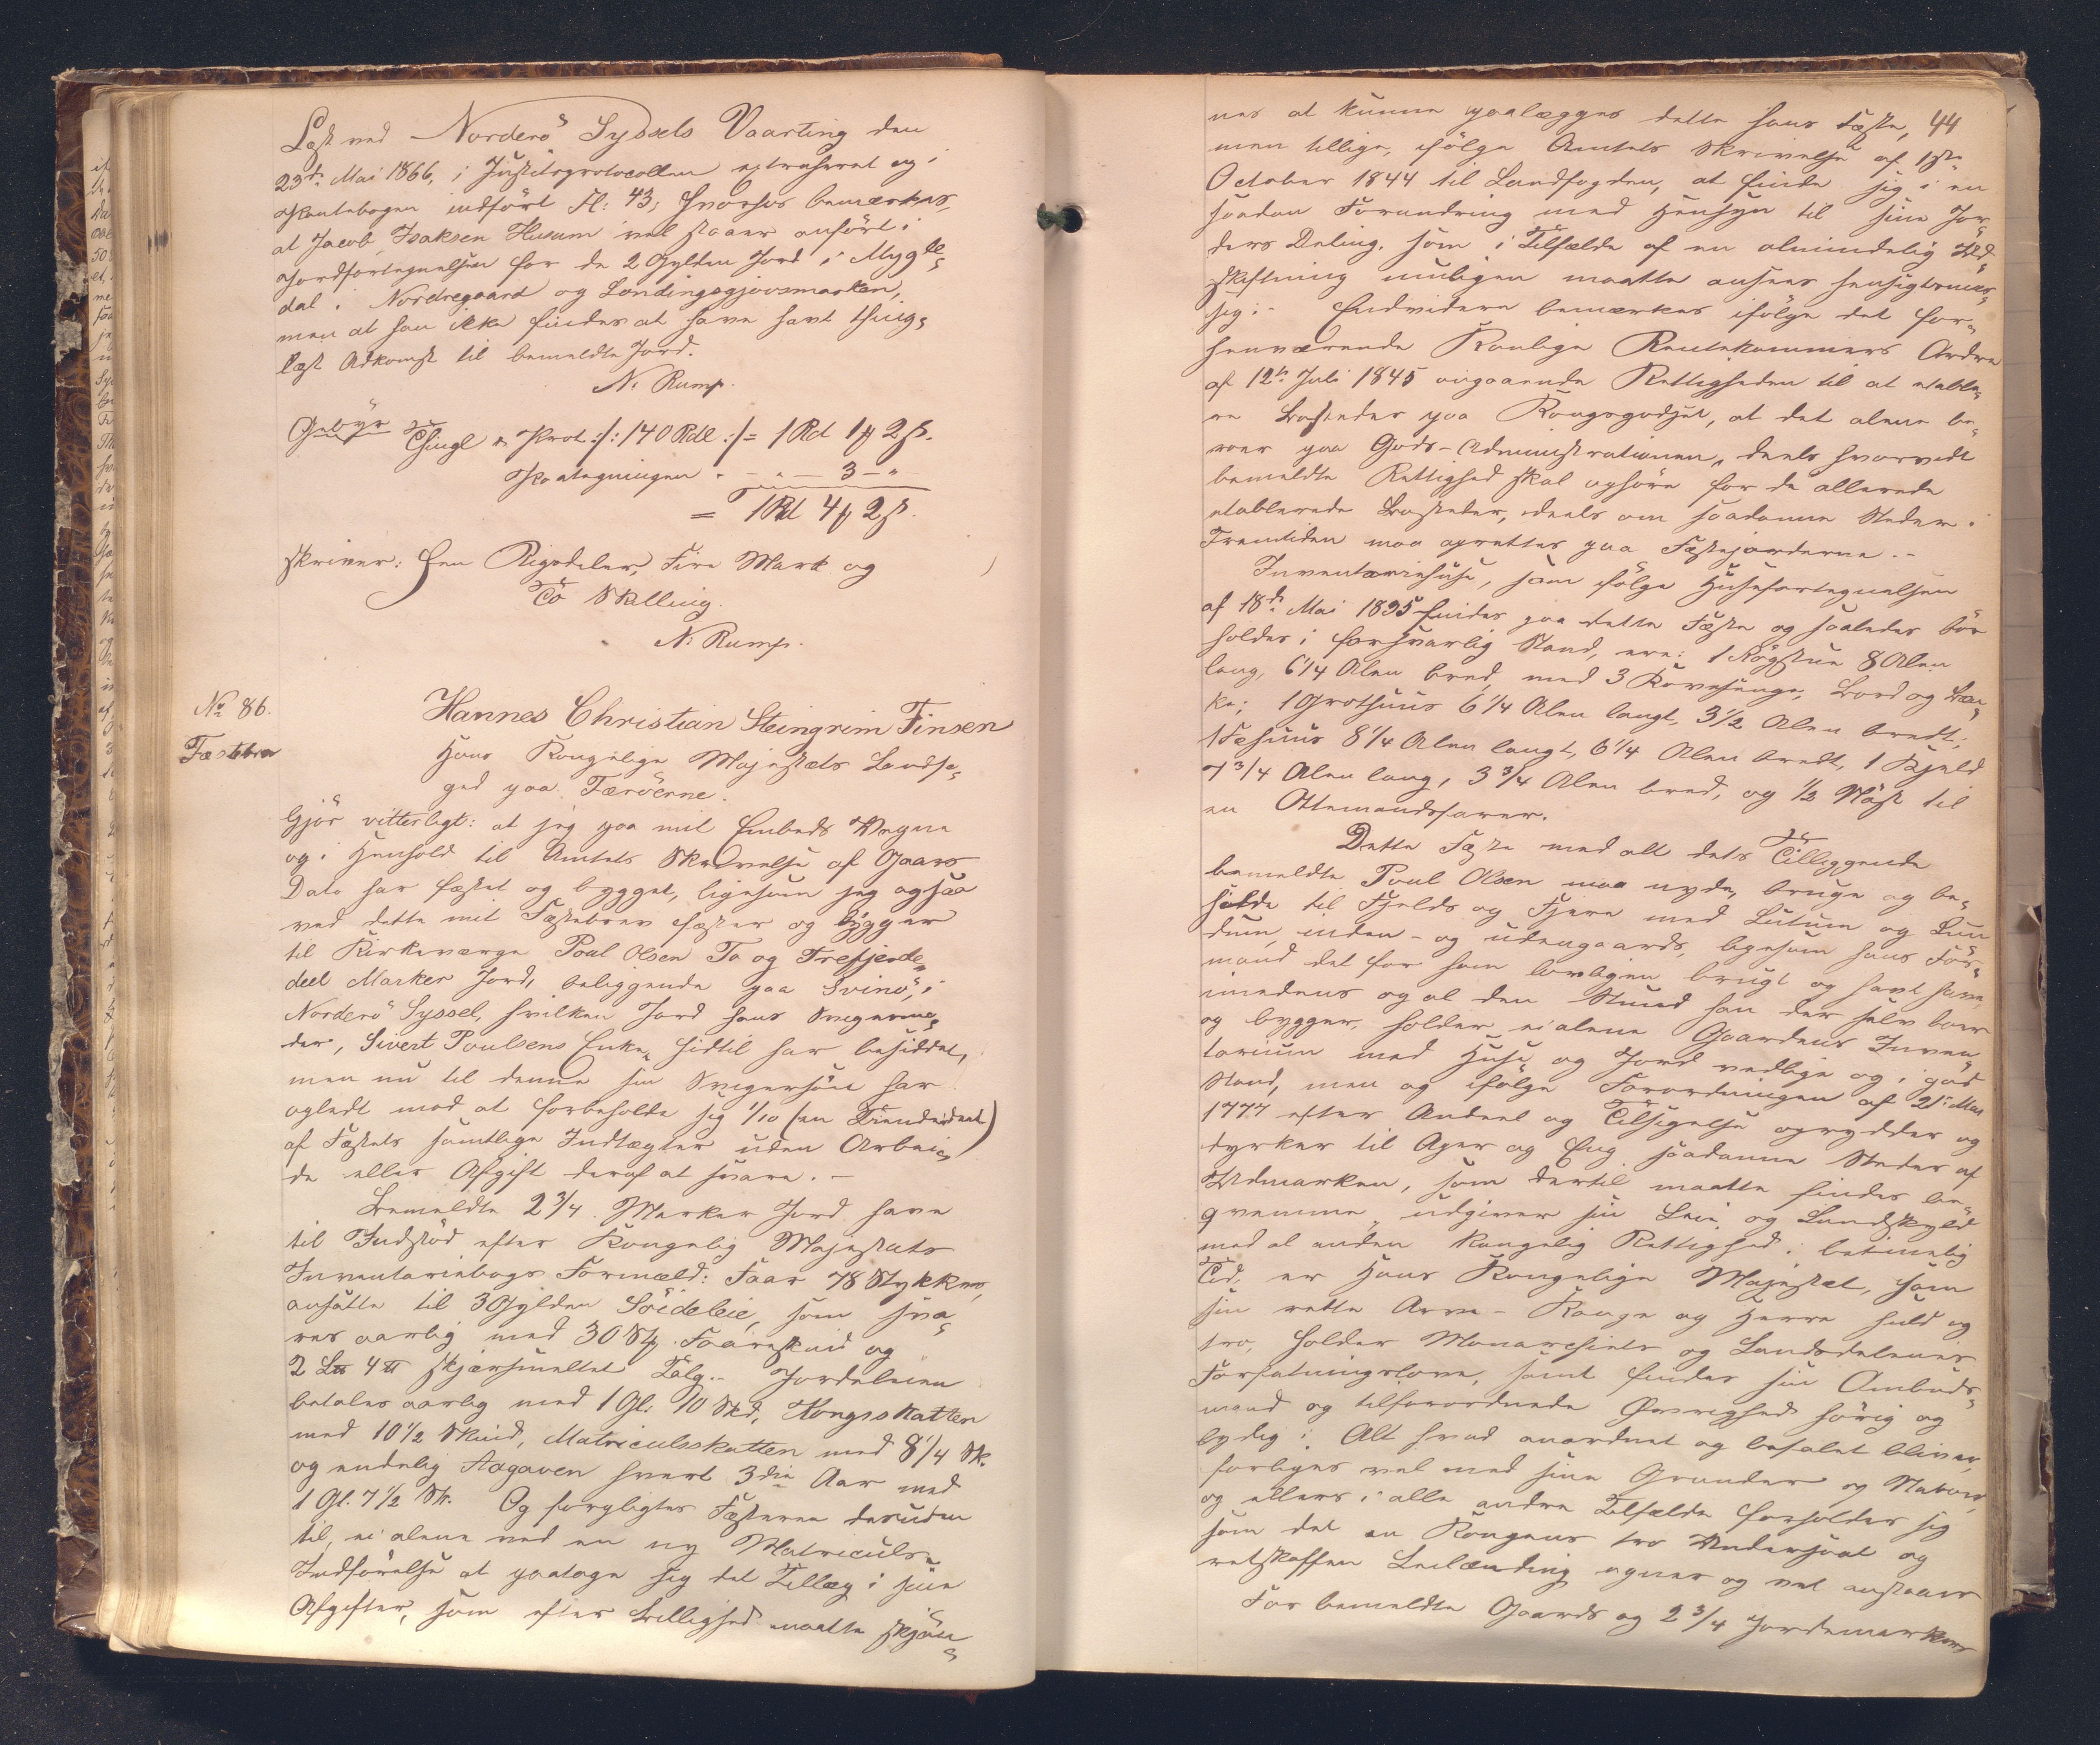 Læst ved Norderø Syssels Vaarting den
23de Mai 1866, i Justitsprotocollen extraheret og i
Pantebogen indført fl: 43; hvorhos bemærkes,
at Jacob Isaksen Husum vel staaer anført i
Jordfortegnelsen for de 2 Gylden Jord i Mygle=
dal i Nordregaard og Landingsgjovsmarken,
men at han ikke findes at have havt thing=
læst Adkomst til bemeldte Jord.
N. Rump.
Gebyr Thingl & Prot :/: 140 Rdl :/= 1 Rd 1 # 2 s.
Paategningen " - " - 3 - "
= 1 Rd 4 # 2 s.
skriver: Een Rigsdaler, Fire Mark og
To Skilling.
N. Rump.
No 86.
Fæstebrev
Hannes Christian Steingrim Finsen
Hans Kongelige Majestæts Landfo=
ged paa Færöerne.
Gjør vitterligt: at jeg paa mit Embeds Vegne
og i Henhold til Amtets Skrivelse af Gaars
Dato har fæstet og bygget, ligesom jeg ogsaa
ved dette mit Fæstebrev fæster og bygger
til Kirkeværge Poul Olsen To og Trefjerde=
deel Marker Jord, beliggende paa Svinö, i
Norderö Syssel, hvilken Jord hans Svigermo=
der, Sivert Poulsens Enke, hidtil har besiddet,
men nu til denne sin Svigersön har
opladt mod at forbeholde sig 1/10 (en Tiendedeel)
af Fæstets samtlige Indtægter uden Arbei=
de eller Afgift deraf at svare. -
Bemeldte 2 3/4 Marker Jord have
til Indstöd efter Kongelig Majestæts
Inventariebogs Formæld: Faar 78 Stykker,
ansatte til 3 Gylden Söideleie, som sva=
res aarlig med 30 Stk. Faareskind og
2 L℔ 4 ℔ skjærsmeltet Talg. - Jordeleien
betales aarlig med 1 Gl: 10 Skd, Kongsskatten
med 10 1/2 Skind, Matriculsskatten med 8 1/4 Sk.
og endelig Aagaven hvert 3die Aar med
1 Gl. 7 1/2 Sk. Og forpligtes Fæsteren desuden
til, ei alene ved en ny Matriculs=
Indförelse at paatage sig det Tillæg i sine
Afgifter, som efter Billighed maatte skjön=
44
nes at kunne paalægges dette hans Fæste,
men tillige, ifölge Amtets Skrivelse af 1ste
October 1844 til Landfogden, at finde sig i en
saadan Forandring med Hensyn til sine Jor=
ders Deling, som i Tilfælde af en almindelig Ud=
skiftning muligen maatte ansees hensigtsmæs=
sig. - Endvidere bemærkes ifölge det for=
henværende Kongelige Rentekammers Ordre
af 12te Juli 1845 angaaende Rettigheden til at etable=
re Bosteder paa Kongsgodset, at det alene be=
roer paa Gods-Administrationen, deels hvorvidt
bemeldte Rettighed skal ophöre for de allerede
etablerede Bosteder, deels om saadanne Steder i
Fremtiden maa oprettes paa Fæstejorderne. -
Inventariehuse, som ifölge Husefortegnelsen
af 18de Mai 1835 findes paa dette Fæste og saaledes bör
holdes i forsvarlig Stand, ere: 1 Rögstue 8 Alen
lang, 6 1/4 Alen bred, med 3 Kovesenge, Bord og Bæn=
ke; 1 Grothuus 6 1/4 Alen langt, 3 1/2 Alen bredt;
1 Fæhuus 8 1/4 Alen langt, 6 1/4 Alen bredt, 1 Kjeld
7 3/4 Alen lang, 3 3/4 Alen bred, og 1/2 Nöst til
en Ottemandsfarer.
Dette Fæste med alt dets Tilliggende
bemeldte Poul Olsen maa nyde, bruge og be=
holde til Fjelds og Fjære med Lutum og Lun=
dum, inden- og udengaards, ligesom hans For=
mand det for ham lovligen brugt og havt have,
imedens og al den Stund han der selv boer
og bygger, holder ei alene Gaardens Inven=
tarium med Huse og Jord vedlige og i god
Stand, men og ifölge Forordningen af 21de Mai
1777 efter Andeel og Tilsigelse oprydder og
dyrker til Ager og Eng saadanne Steder af
Udmarken, som dertil maatte findes be=
qvemme, udgiver sin Leie og Landskyld
med al anden kongelig Rettighed i betimelig
Tid, er Hans Kongelige Majestæt, som
sin rette Arve-Konge og Herre huld og
tro, holder Monarchiets og Landsdelenes
Forfatningslove, samt findes sin Ombuds=
mand og tilforordnede Övrighed hörig og
lydig i Alt hvad anordnet og befalet bliver,
forliges vel med sine Grander og Naboer,
og ellers i alle andre Tilfælde forholder sig
som det en Kongens tro Undersaat og
retskaffen Leilænding egner og vel anstaaer
For bemeldte Gaards og 2 3/4 Jordemarkers